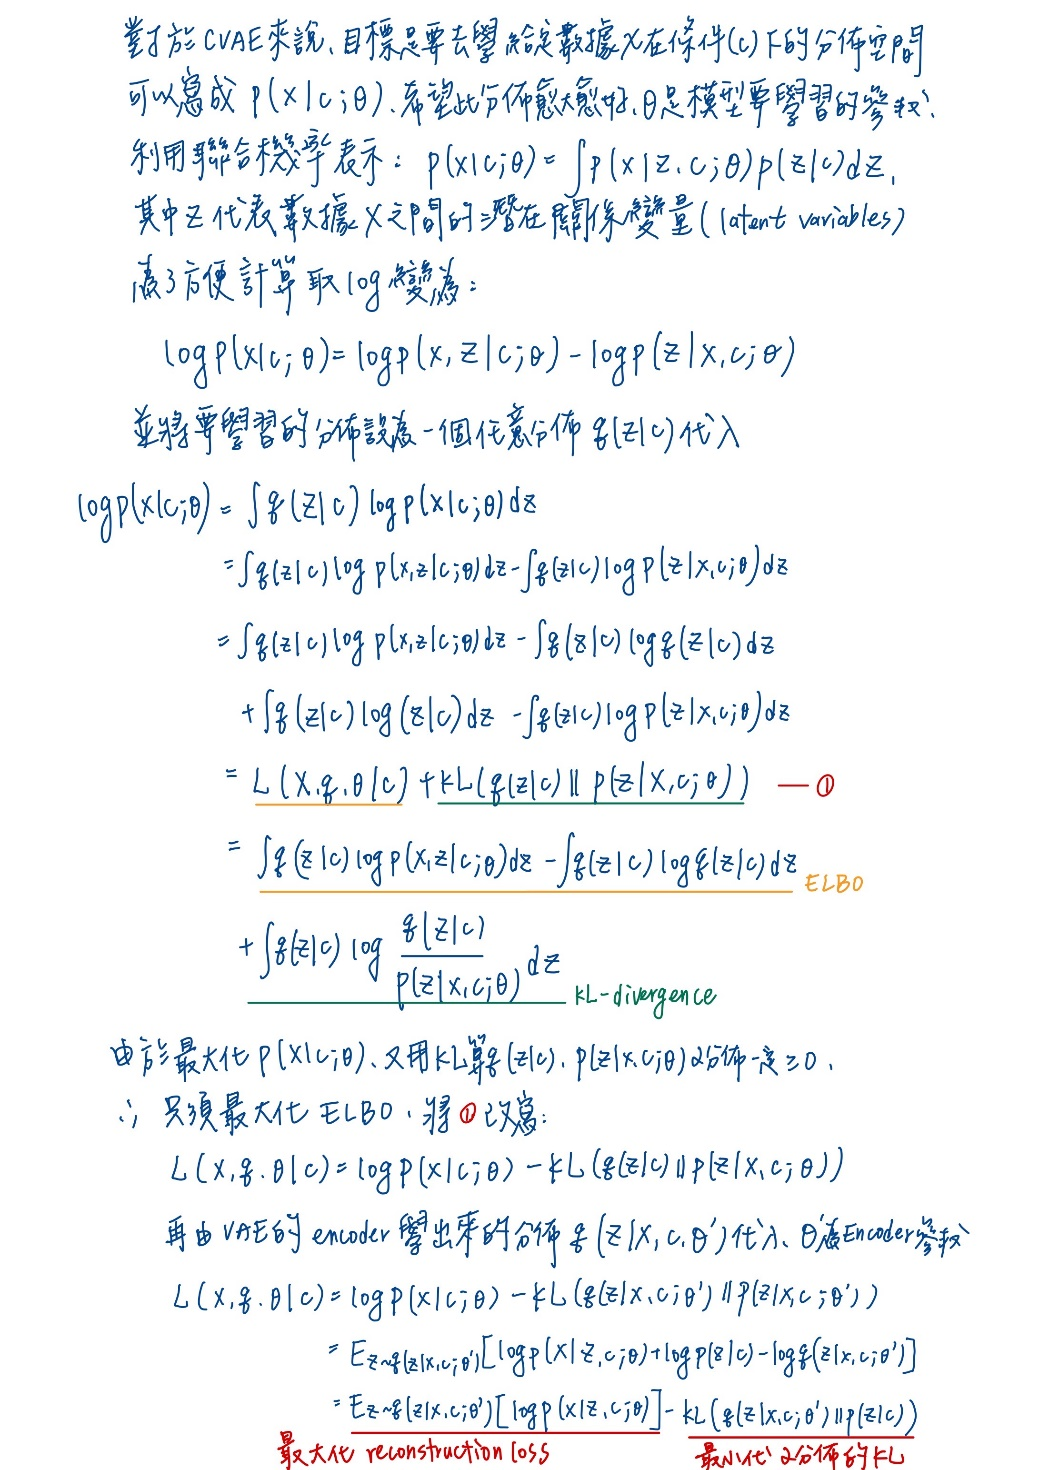 對於CVAE來說、目標是要去學給定數據X在條件(c)下的分佈空間
可以寫成 p(x|c;θ)、希望此分佈愈大愈好、θ是模型要學習的參數、
利用聯合機率表示: p(x|c;θ)=∫p(x|z,c;θ)p(z|c)dz,
其中Z代表數據X之間的潛在關係變量(latent variables)
為了方便計算取log變為:
logp(x|c;θ)=logp(x,z|c;θ)-logp(z|x,c;θ)
並將要學習的分佈設為一個任意分佈 q(z|c)代入
logp(x|c;θ)=∫q(z|c)logp(x|c;θ)dz
=∫q(z|c)log p(x,z|c;θ)dz-∫q(z|c)logp(z|x,c;θ)dz
=∫q(z|c)log p(x,z|c;θ)dz-∫q(z|c)logq(z|c)dz
+∫q(z|c)log(z|c)dz -∫q(z|c)logp(z|x,c;θ)dz
= L(X,q,θ|c)+KL(q(z|c)||p(z|X,c;θ)) —①
= ∫q(z|c)logp(x,z|c;θ)dz-∫q(z|c)logq(z|c)dz ELBO
+∫q(z|c)log q(z|c)/p(z|x,c;θ) dz KL-divergence
由於最大化p(x|c;θ)、又用KL算q(z|c)、p(z|x,c;θ)2分佈一定≥0,
∴ 只須最大化 ELBO,將①改寫:
L(x,q,θ|c)=logp(x|c;θ)-KL(q(z|c)||p(z|x,c;θ))
再由VAE的encoder學出來的分佈q(z|x,c,θ')代入、θ'為Encoder參數
L(x,q,θ|c)=logp(x|c;θ)-KL(q(z|x,c;θ')||p(z|x,c;θ'))
=E z~q(z|x,c;θ')[logp(x|z,c;θ)+logp(z|c)-logq(z|x,c;θ')]
=E z~q(z|x,c;θ')[logp(x|z,c;θ)]-KL(q(z|x,c;θ')||p(z|c))
最大化 reconstruction loss 最小化 2分佈的KL